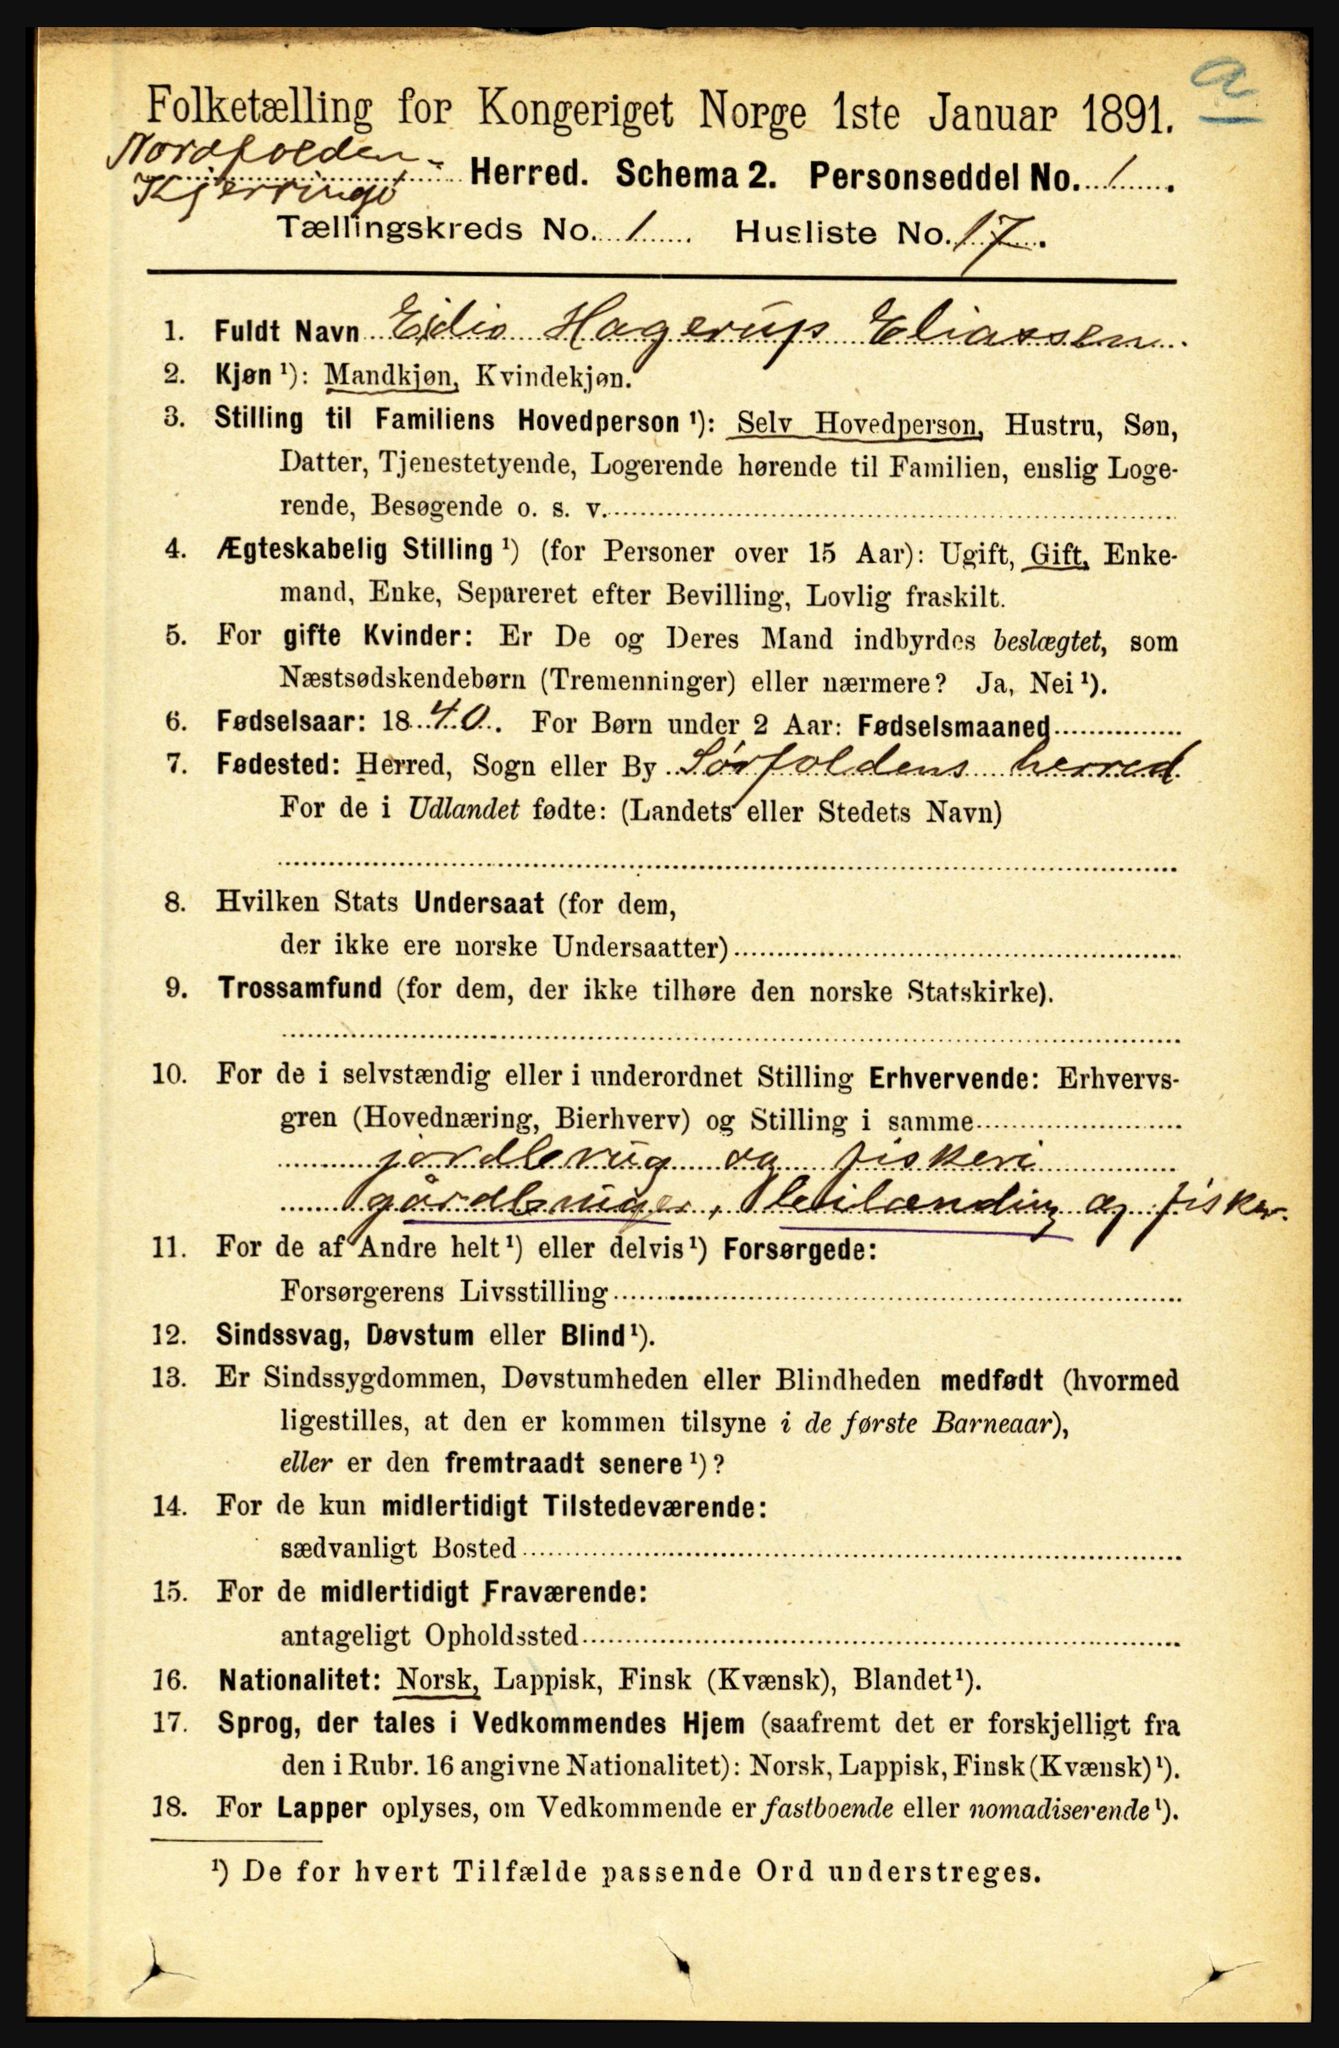 a
Folketælling for Kongeriget Norge 1ste Januar 1891.
Nordfolden-
Kjerringø Herred. Schema 2. Personseddel No. 1.
Tællingskreds No. 1 Husliste No. 17.
1. Fuldt Navn Hagerup Eliassen.
2. Kjøn ¹): Mandkjøn, Kvindekjøn.
3. Stilling til Familiens Hovedperson ¹): Selv Hovedperson, Hustru, Søn,
Datter, Tjenestetyende, Logerende hørende til Familien, enslig Loge-
rende, Besøgende o. s. v.
4. Ægteskabelig Stilling ¹) (for Personer over 15 Aar): Ugift, Gift, Enke-
mand, Enke, Separeret efter Bevilling, Lovlig fraskilt.
5. For gifte Kvinder: Er De og Deres Mand indbyrdes beslægtet, som
Næstsødskendebørn (Tremenninger) eller nærmere? Ja, Nei ¹).
6. Fødselsaar: 1840. For Børn under 2 Aar: Fødselsmaaned
7. Fødested: Herred, Sogn eller By Sørfoldens herred
For de i Udlandet fødte: (Landets eller Stedets Navn)
8. Hvilken Stats Undersaat (for dem,
der ikke ere norske Undersaatter)
9. Trossamfund (for dem, der ikke tilhøre den norske Statskirke).
10. For de i selvstændig eller i underordnet Stilling Erhvervende: Erhvervs-
gren (Hovednæring, Bierhverv) og Stilling i samme
jordbrug og fiskeri
gårdbruger, leilænding og fisker.
11. For de af Andre helt ¹) eller delvis ¹) Forsørgede:
Forsørgerens Livsstilling
12. Sindssvag, Døvstum eller Blind ¹).
13. Er Sindssygdommen, Døvstumheden eller Blindheden medfødt (hvormed
ligestilles, at den er kommen tilsyne i de første Barneaar),
eller er den fremtraadt senere ¹)?
14. For de kun midlertidigt Tilstedeværende:
sædvanligt Bosted
15. For de midlertidigt Fraværende:
antageligt Opholdssted
16. Nationalitet: Norsk, Lappisk, Finsk (Kvænsk), Blandet ¹).
17. Sprog, der tales i Vedkommendes Hjem (saafremt det er forskjelligt fra
den i Rubr. 16 angivne Nationalitet): Norsk, Lappisk, Finsk (Kvænsk) ¹).
18. For Lapper oplyses, om Vedkommende er fastboende eller nomadiserende ¹).
¹) De for hvert Tilfælde passende Ord understreges.